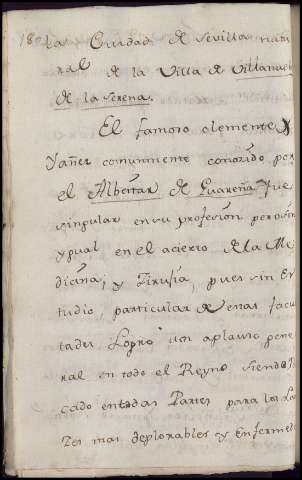 180
la Ciudad de Sevilla natu
ral de la Villa de Villanueba
de la Serena.
El famoso Clemente
Yañez comunmente conozido por
el Albeitar de Guareña fue
singular en su profesion pero sin
ygual en el acierto de la Me
dicina, y Zirujia, pues sin Es
tudio, particular de estas facu
tades Logró un aplauso gene
ral en todo el Reyno siendo
cado en todas Partes para los
Zes mas deplorables y Enferme